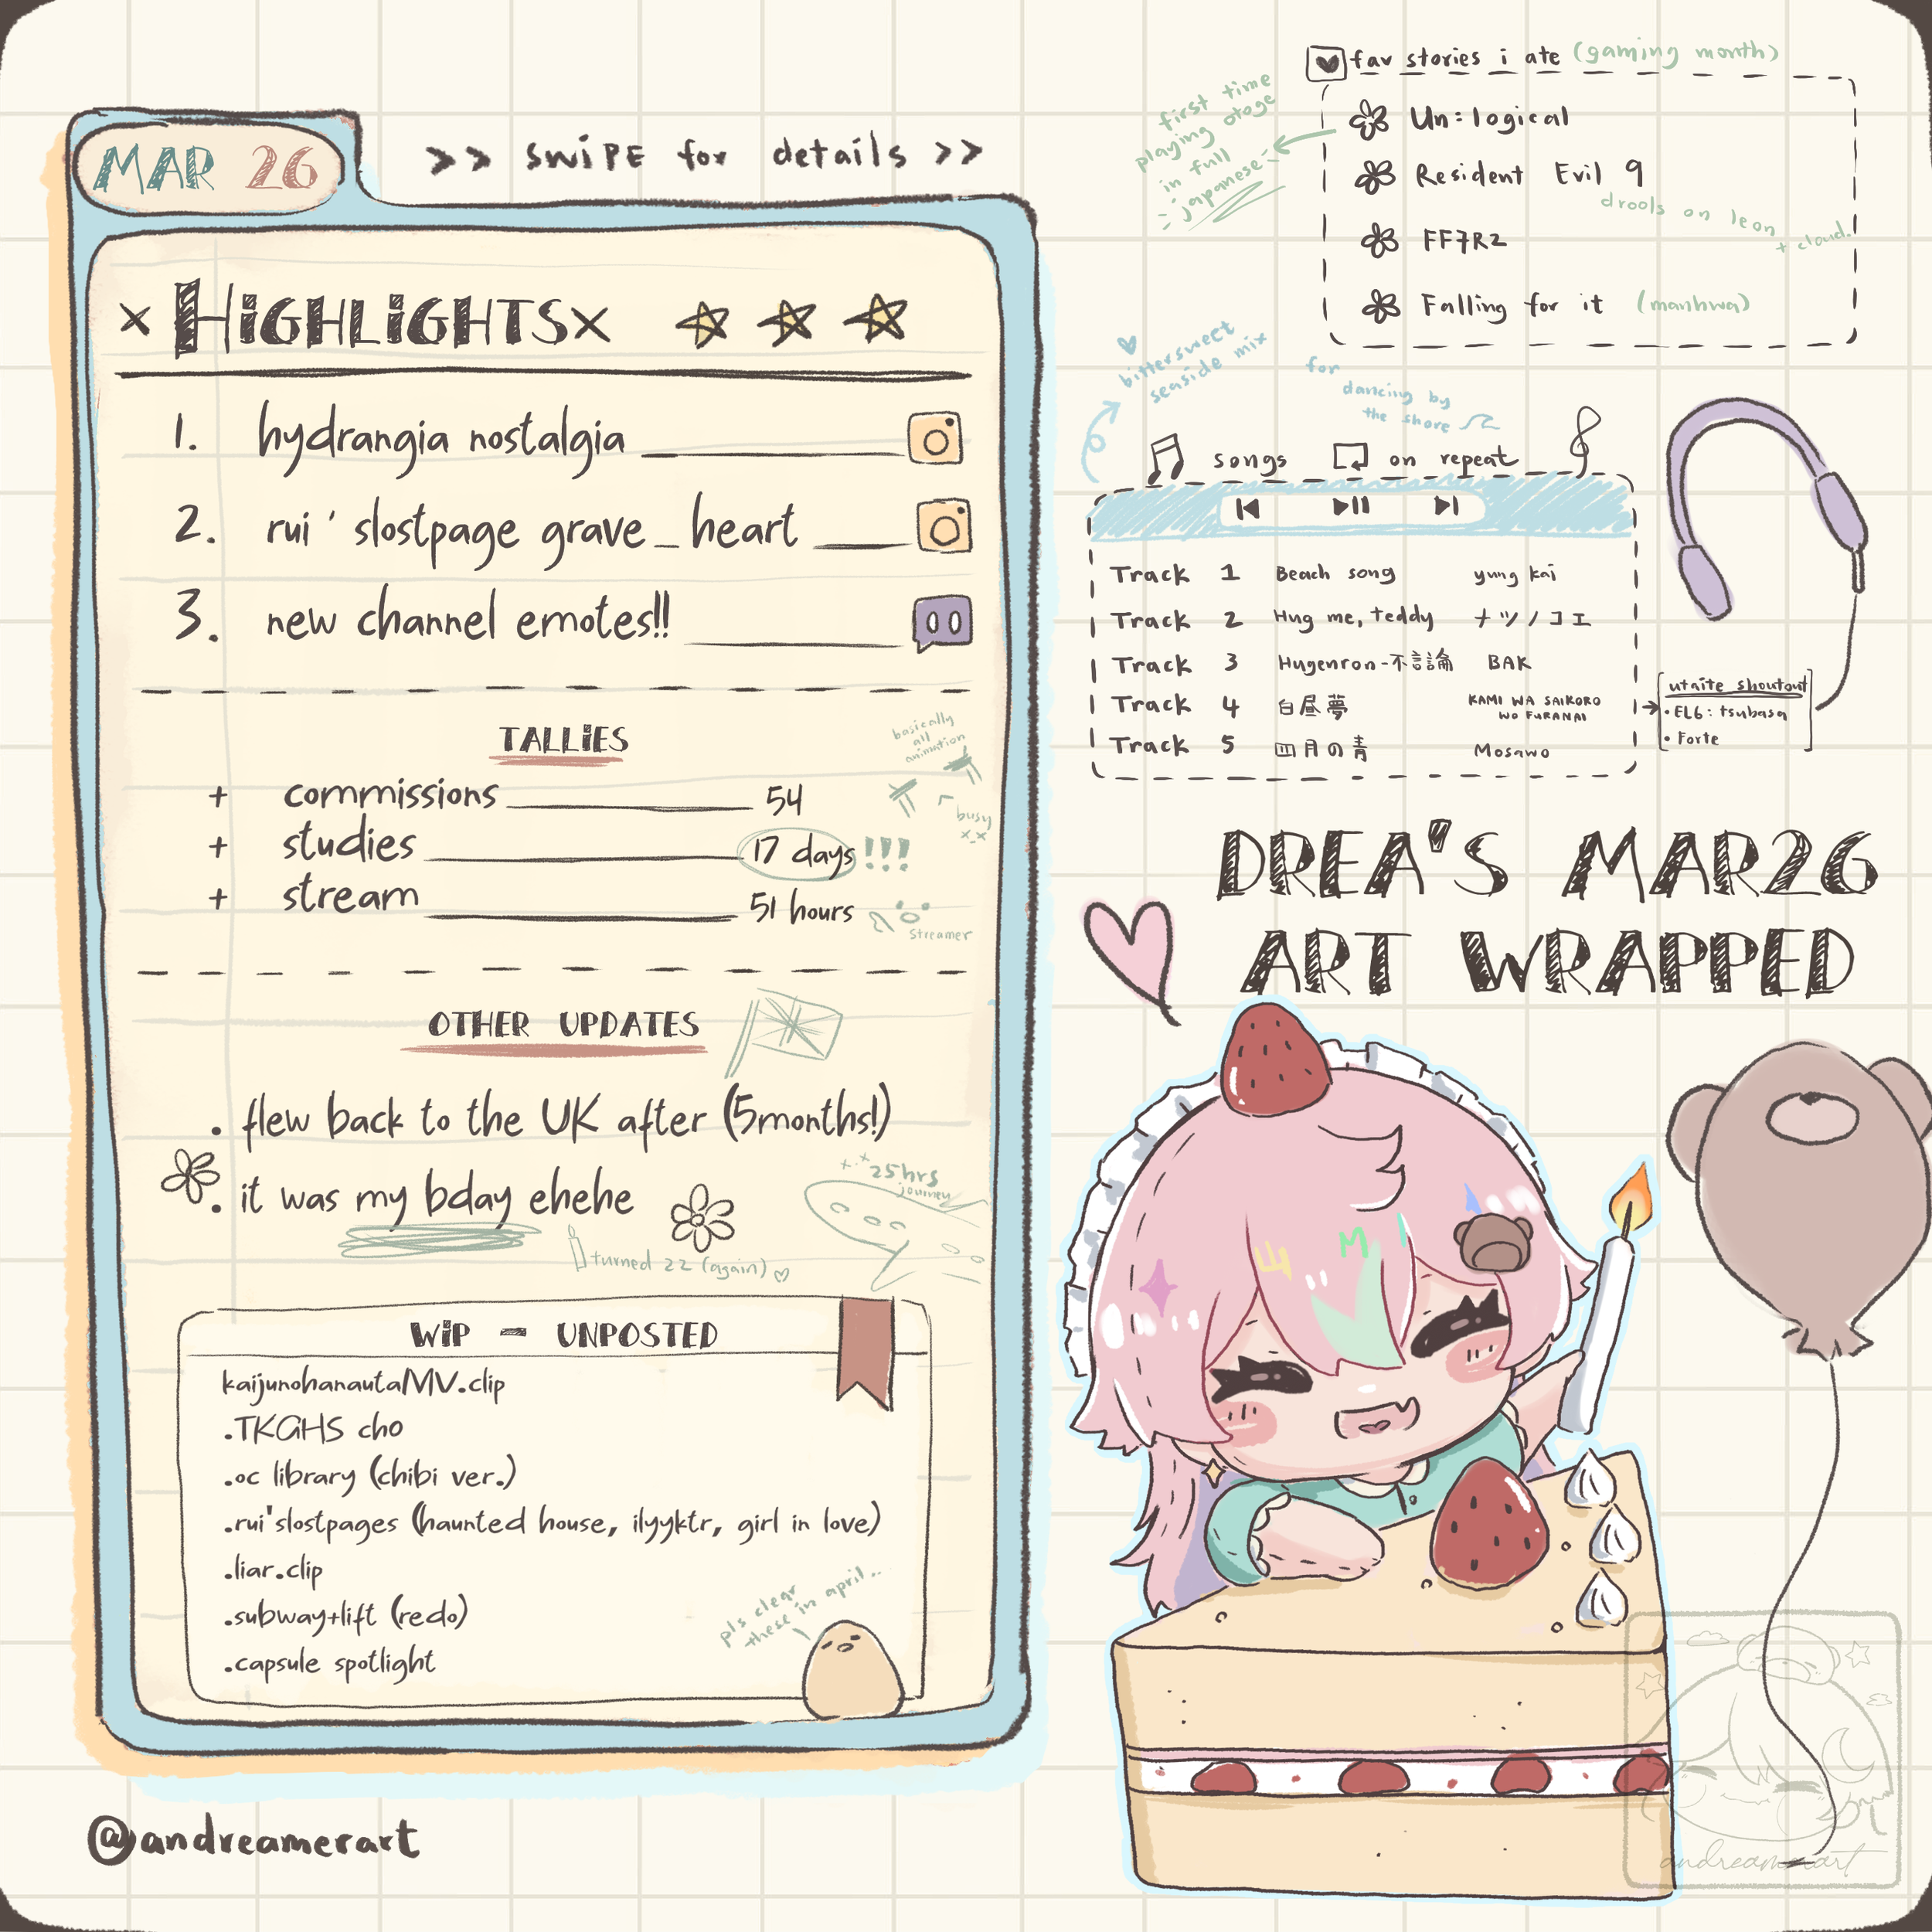 MAR 26
>> SWIPE for details >>
× HIGHLIGHTS ×
1. hydrangia nostalgia
2. rui ' slostpage grave_heart
3. new channel emotes!!
TALLIES
basically
all
animation
+ commissions 54
busy
x_x
+ studies 17 days !!!
+ stream 51 hours
streamer
OTHER UPDATES
. flew back to the UK after (5months!)
. it was my bday ehehe
25hrs
journey
turned 22 (again)
WIP - UNPOSTED
kaijunohanautaMV.clip
.TKGHS cho
.oc library (chibi ver.)
.rui'slostpages (haunted house, ilyyktr, girl in love)
.liar.clip
.subway+lift (redo)
.capsule spotlight
pls clear
these in april..
@andreamerart
fav stories i ate (gaming month)
first time
playing otoge
in full
japanese
Un:logical
Resident Evil 9
drools on leon
+ cloud.
FF7R2
Falling for it (manhwa)
bittersweet
seaside mix
for
dancing by
the shore
songs on repeat
Track 1 Beach song yung kai
Track 2 Hug me, teddy ナツノコエ
Track 3 Hugenron-不言論 BAK
Track 4 白昼夢 KAMI WA SAIKORO
WO FURANAI
Track 5 四月の青 Mosawo
utaite shoutout
• EL6: tsubasa
• Forte
DREA'S MAR26
ART WRAPPED
andreamerart